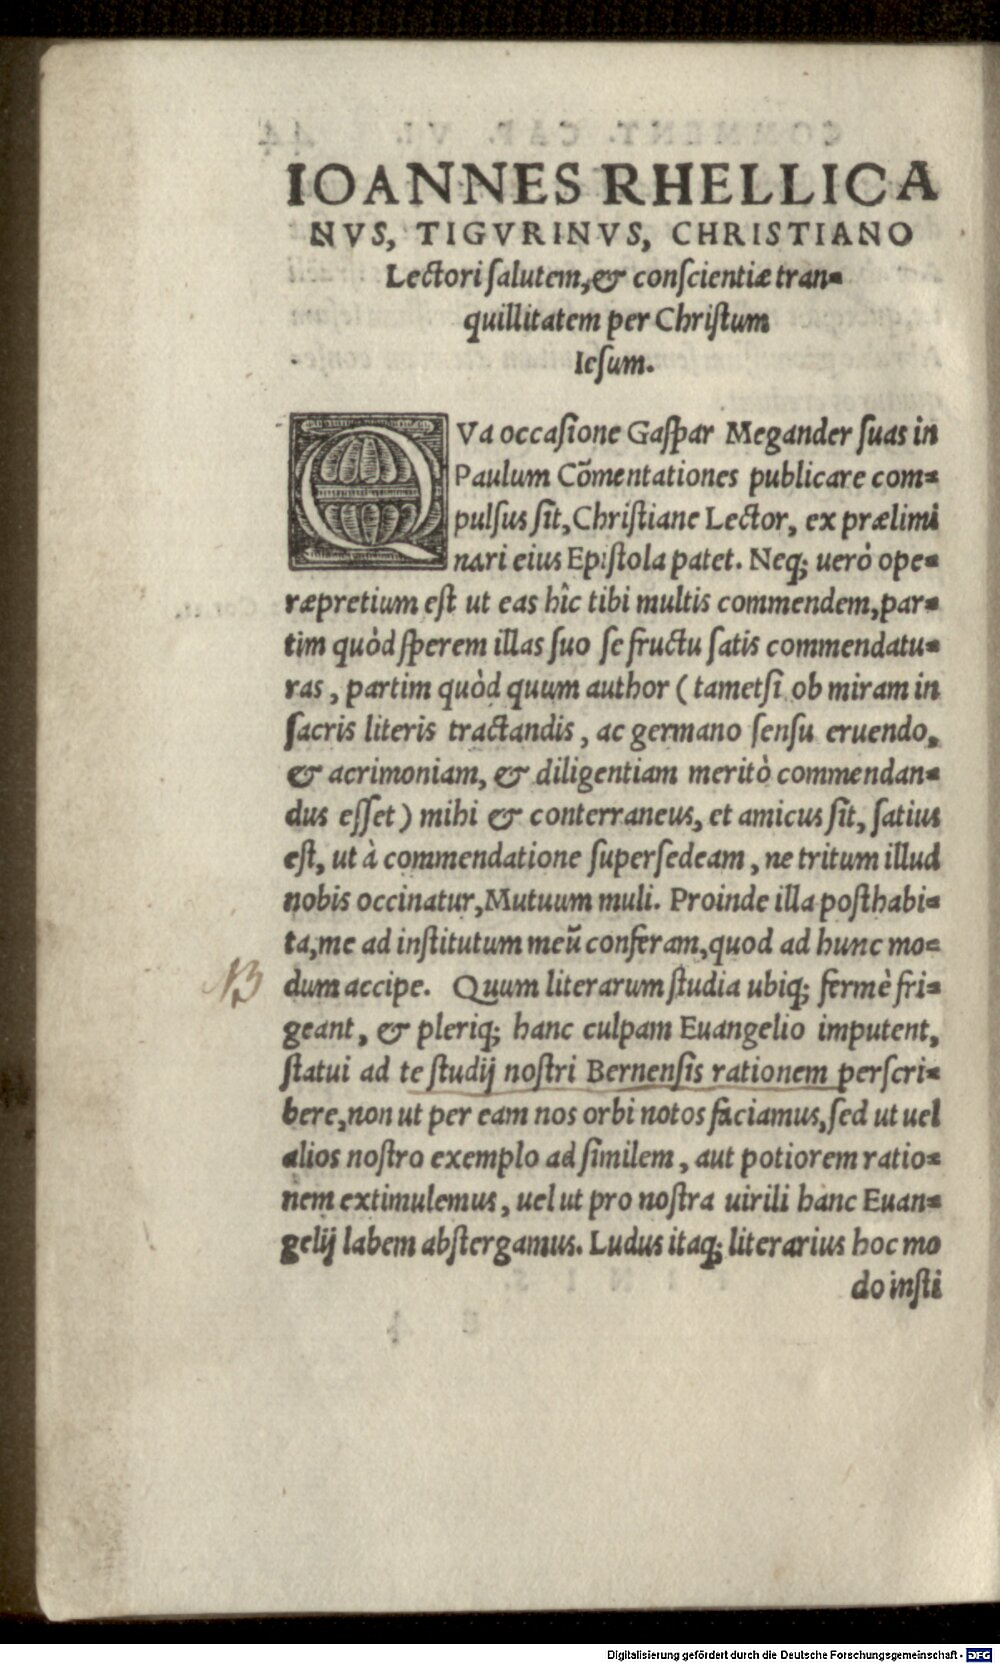 IOANNES RHELLICA
NVS, TIGVRINVS, CHRISTIANO
Lectori ſalutem, & conſcientiæ tran-
quillitatem per Chriſtum
Ieſum.
QVa occaſione Gaſpar Megander ſuas in
Paulum Cõmentationes publicare com-
pulſus ſit, Chriſtiane Lector, ex prælimi
nari eius Epiſtola patet. Neq; uerò ope-
ræpretium eſt ut eas hîc tibi multis commendem, par-
tim quòd ſperem illas ſuo ſe fructu ſatis commendatu-
ras, partim quòd quum author (tametſi ob miram in
ſacris literis tractandis, ac germano ſenſu eruendo,
& acrimoniam, & diligentiam meritò commendan-
dus eſſet) mihi & conterraneus, et amicus ſit, ſatius
eſt, ut à commendatione ſuperſedeam, ne tritum illud
nobis occinatur, Mutuum muli. Proinde illa poſthabi-
ta, me ad inſtitutum meũ conferam, quod ad hunc mo-
NB
dum accipe. Quum literarum ſtudia ubiq; fermè fri-
geant, & pleriq; hanc culpam Euangelio imputent,
ſtatui ad te ſtudij noſtri Bernenſis rationem perſcri-
bere, non ut per eam nos orbi notos faciamus, ſed ut uel
alios noſtro exemplo ad ſimilem, aut potiorem ratio-
nem extimulemus, uel ut pro noſtra uirili hanc Euan-
gelij labem abſtergamus. Ludus itaq; literarius hoc mo
do inſti
Digitalisierung gefördert durch die Deutsche Forschungsgemeinschaft - DFG